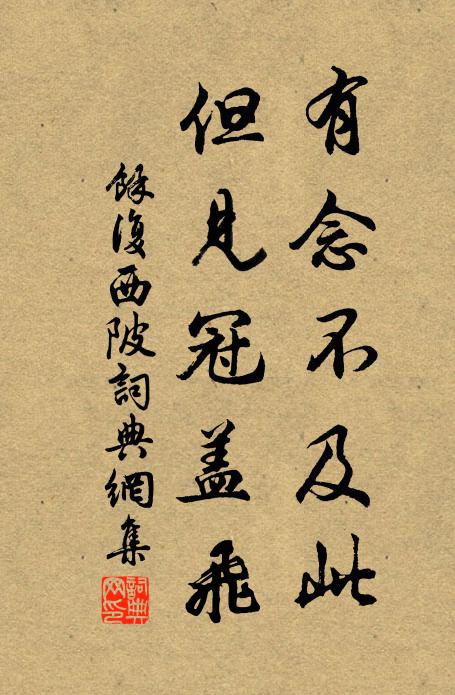 有念不及此
但見冠盖飛
餘復西陂詞典網集
詞典网印